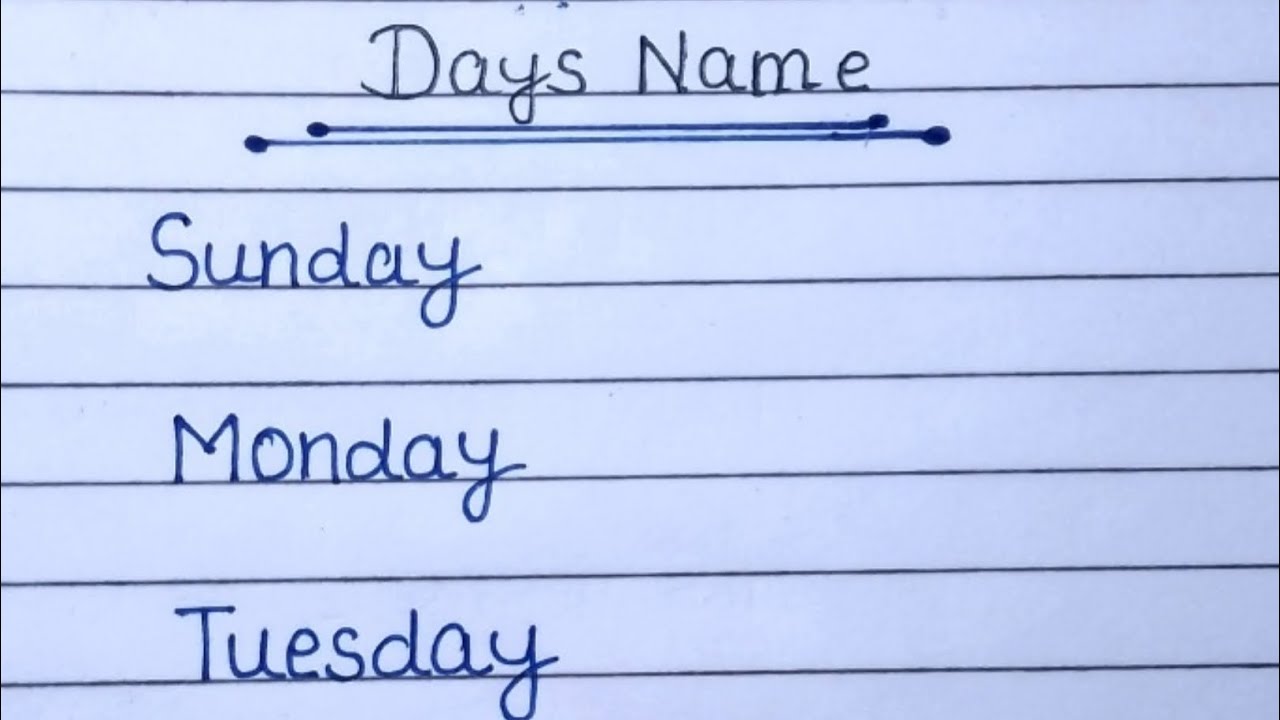 Days Name
Sunday
Monday
Tuesday